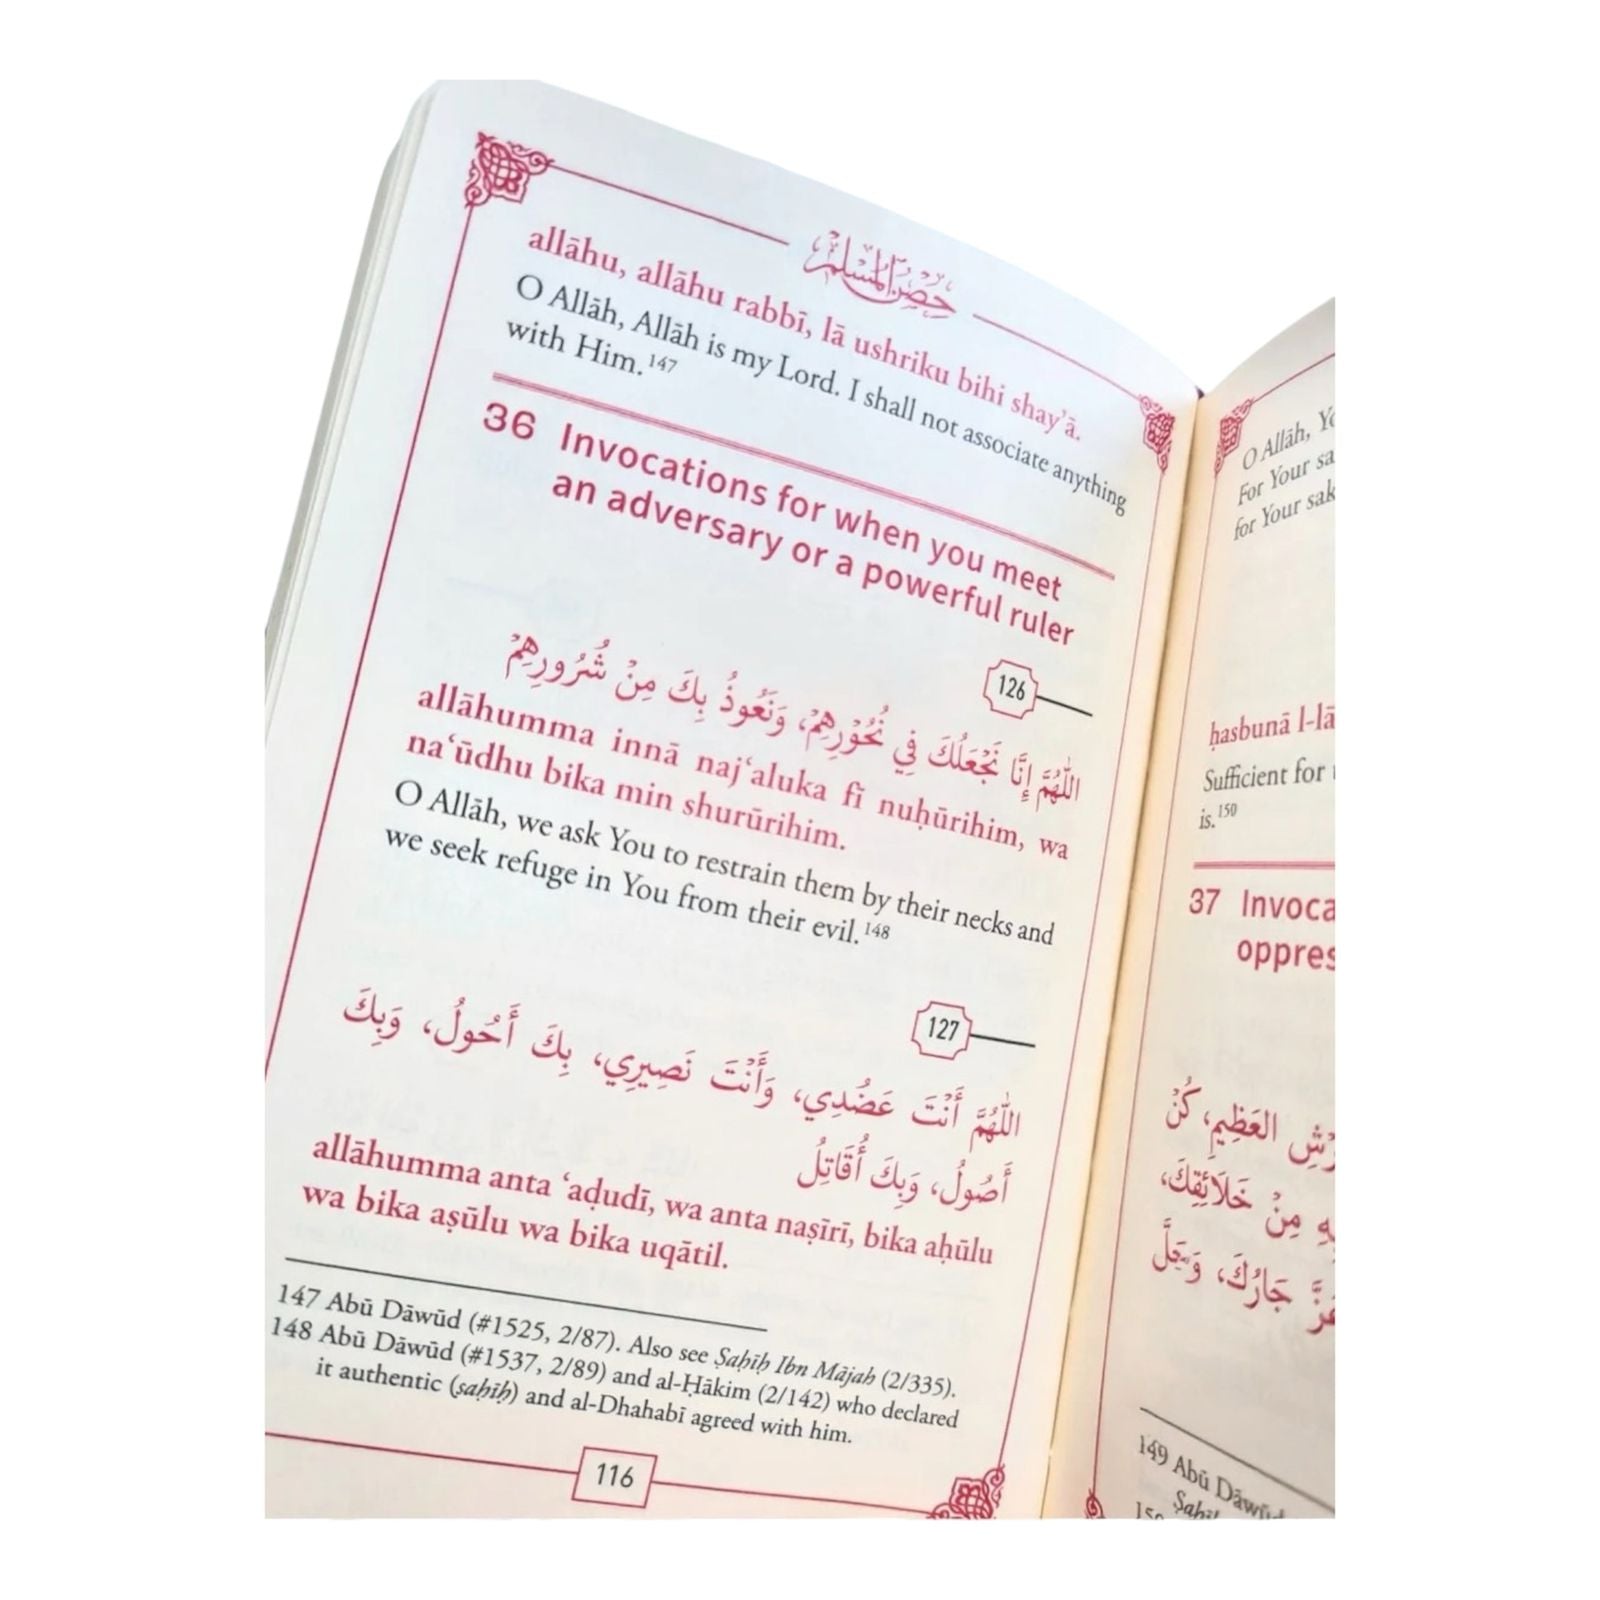 حِصْنُ المُسْلِم
allāhu, allāhu rabbī, lā ushriku bihi shay’ā.
O Allāh, Allāh is my Lord. I shall not associate anything
with Him.147
36 Invocations for when you meet
an adversary or a powerful ruler
126
اللَّهُمَّ إِنَّا نَجْعَلُكَ فِي نُحُوْرِهِمْ، وَنَعُوذُ بِكَ مِنْ شُرُورِهِمْ
allāhumma innā naj‘aluka fī nuḥūrihim, wa
na‘ūdhu bika min shurūrihim.
O Allāh, we ask You to restrain them by their necks and
we seek refuge in You from their evil.148
127
اللَّهُمَّ أَنْتَ عَضُدِي، وَأَنْتَ نَصِيرِي، بِكَ أَحُولُ، وَبِكَ
أَصُولُ، وَبِكَ أُقَاتِلُ
allāhumma anta ‘aḍudī, wa anta naṣīrī, bika aḥūlu
wa bika aṣūlu wa bika uqātil.
147 Abū Dāwūd (#1525, 2/87). Also see Ṣaḥīḥ Ibn Mājah (2/335).
148 Abū Dāwūd (#1537, 2/89) and al-Ḥākim (2/142) who declared
it authentic (ṣaḥīḥ) and al-Dhahabī agreed with him.
116
O Allāh,
For Your
for Your
ḥasbunā
Sufficient for
is.150
37
العَظِيمِ، كُنْ
مِنْ خَلَائِقِكَ،
جَارُكَ، وَجَلَّ
149 Abū Dāwūd